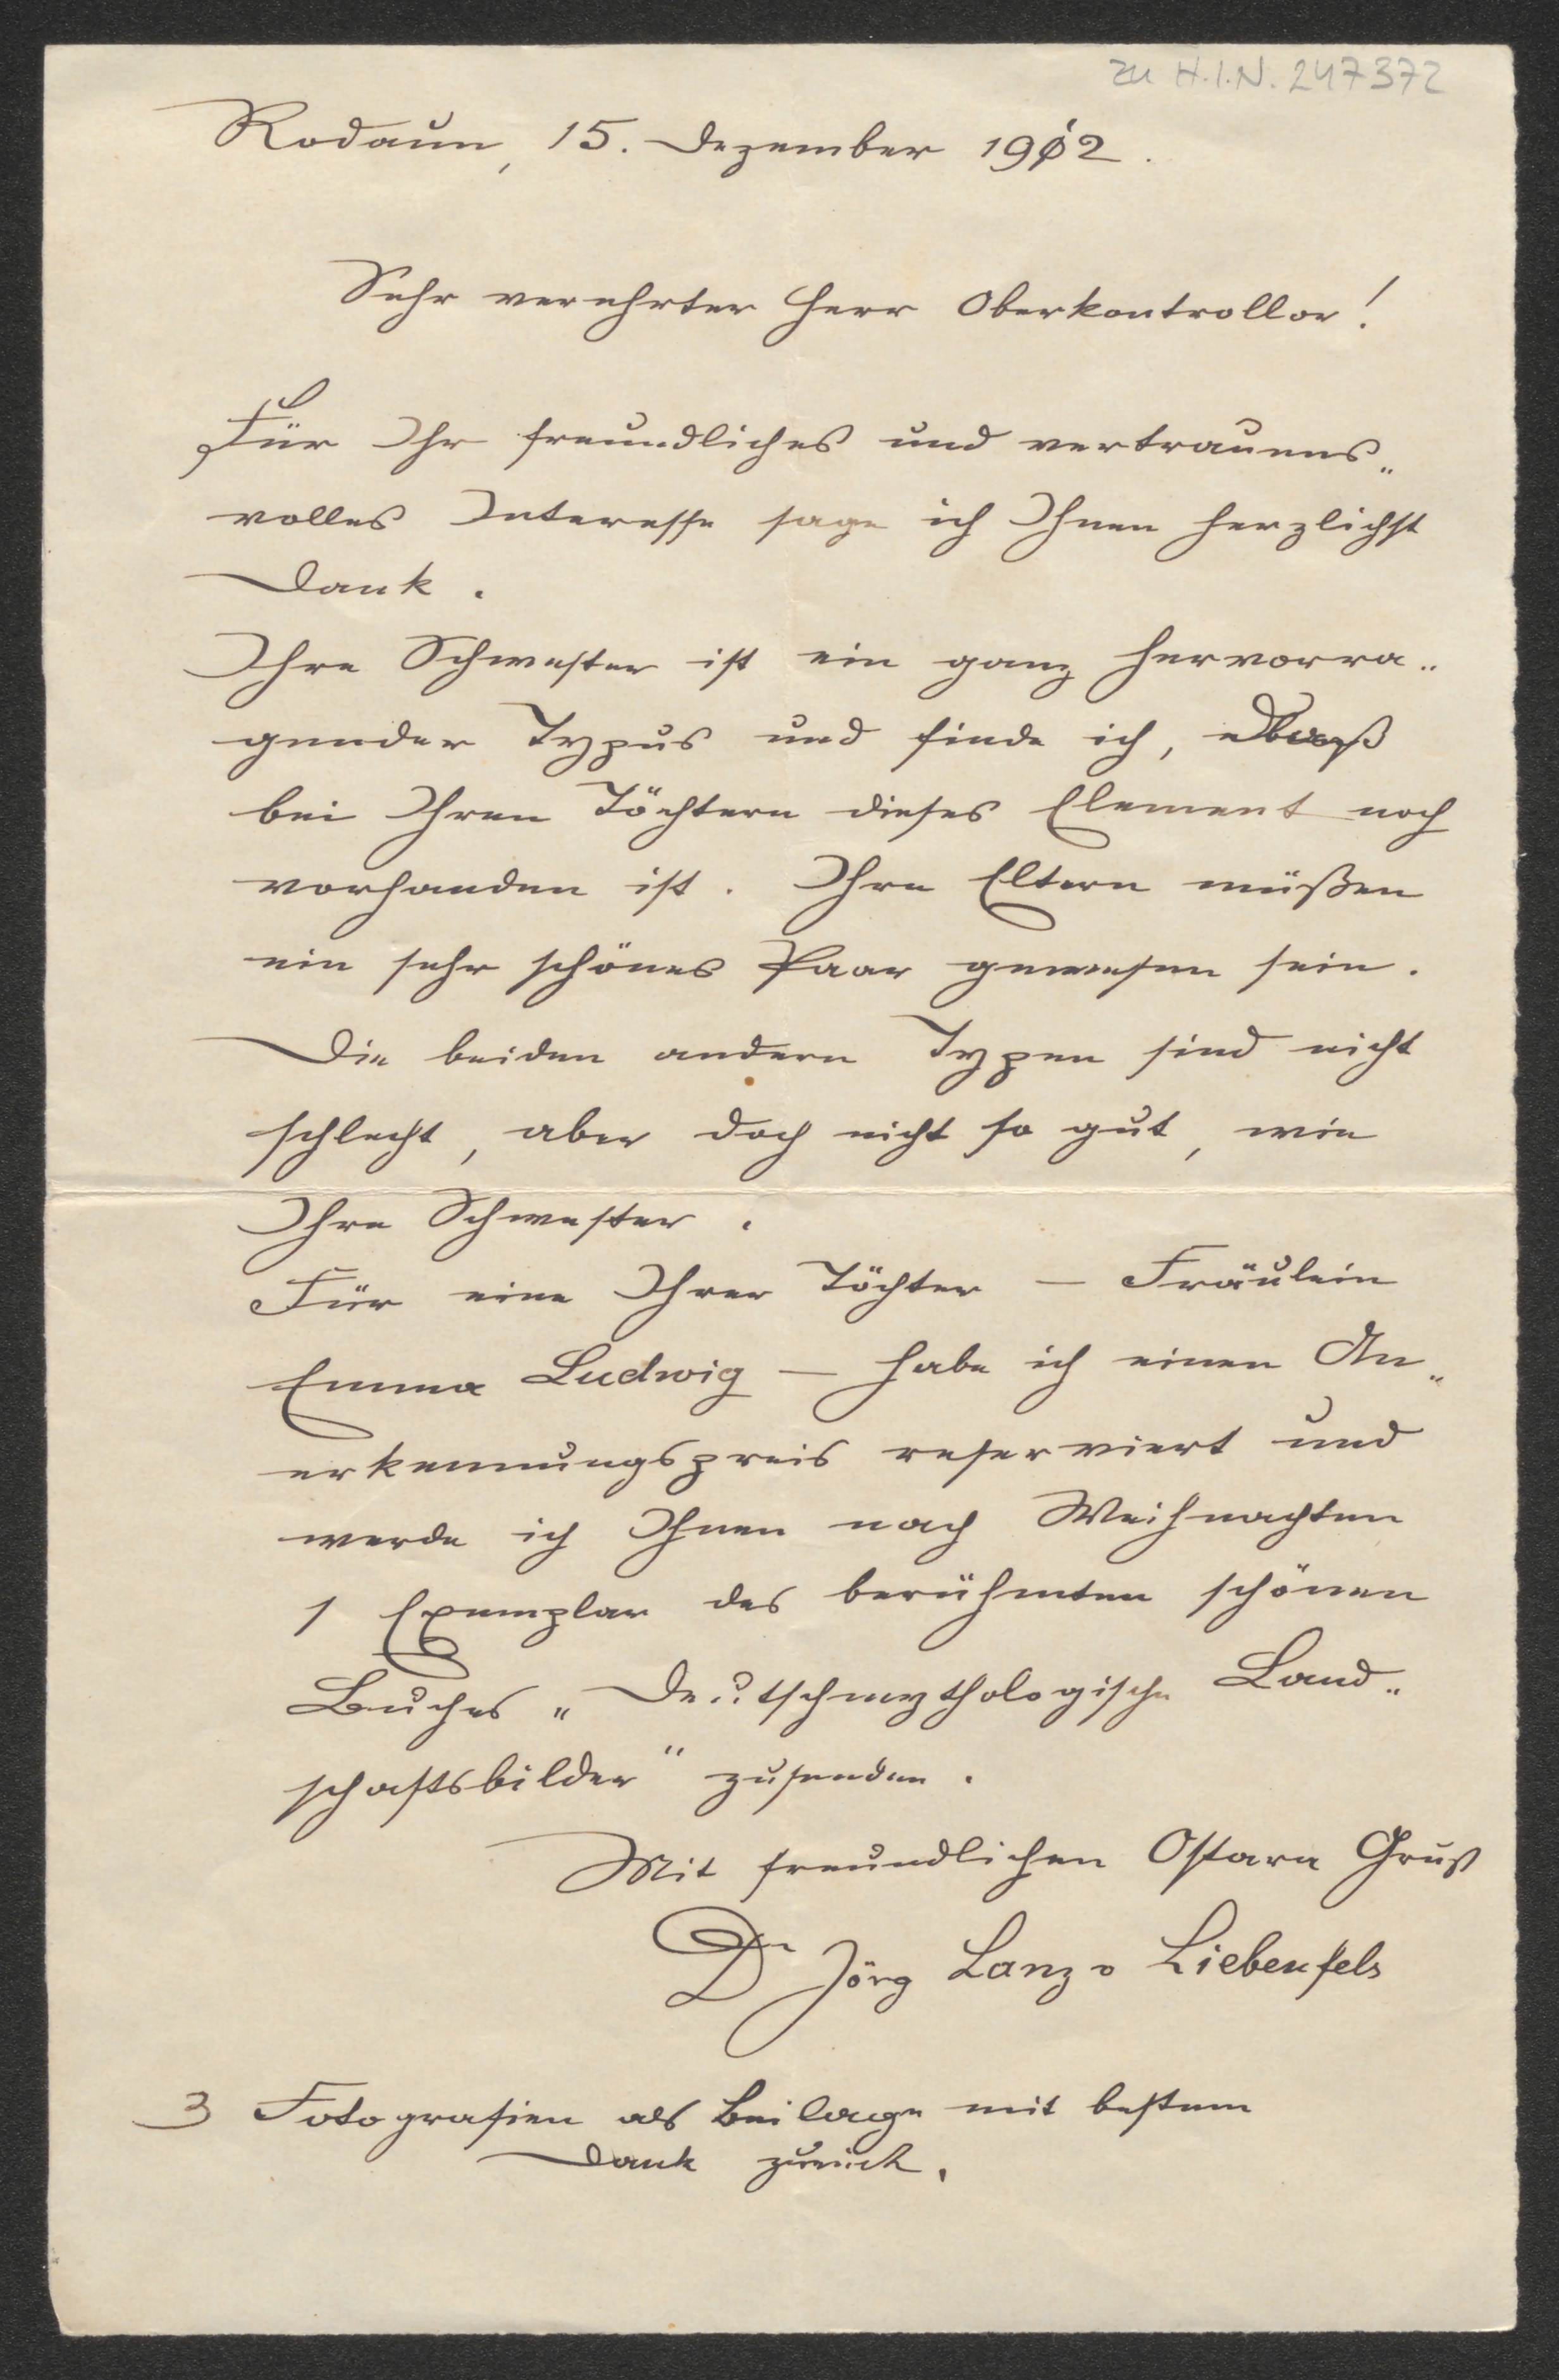 zu H.I.N. 247372
Rodaun, 15. Dezember 1912.
Sehr verehrter Herr Oberkontrollor!
Für Ihr freundliches und vertrauens„
volles Interesse sage ich Ihnen herzlichst
Dank.
Ihre Schwester ist ein ganz hervorra„
gender Typus und finde ich, daß
bei Ihren Töchtern dieses Element noch
vorhanden ist. Ihre Eltern müßen
ein sehr schönes Paar gewesen sein.
Die beiden andern Typen sind nicht
schlecht, aber doch nicht so gut, wie
Ihre Schwester.
Für eine Ihrer Töchter — Fräulein
Emma Ludwig — habe ich einen An„
erkennungspreis reserviert und
werde ich Ihnen nach Weihnachten
1 Exemplar des berühmten schönen
Buches „Deutschmythologische Land„
schaftsbilder" zusenden.
Mit freundlichen Ostara Gruß
Dr Jörg Lanz v Liebenfels
3 Fotografien als Beilage mit bestem
Dank zurück.